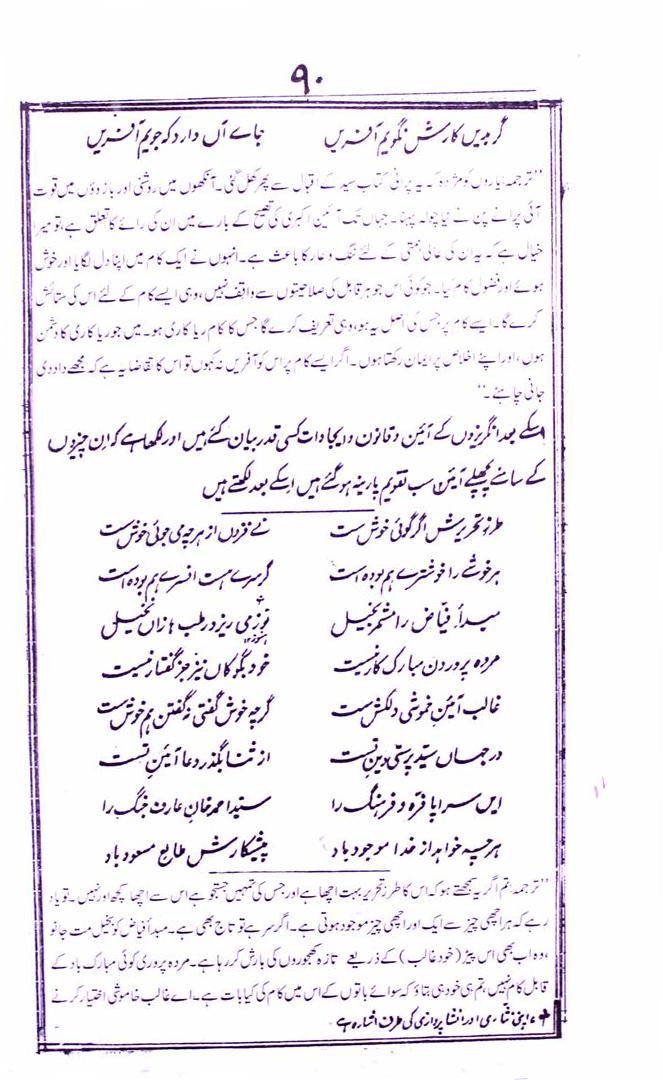 ۹۰
گر بدیں کارش نگویم آفریں جاے آں دارد کہ جویم آفریں
"ترجمہ: یاروں کو مژدہ کہ یہ پرانی کتاب سید کے اقبال سے پھر کھل گئی۔ آنکھوں میں روشنی اور بازوؤں میں قوت
آئی پرانے پن نے نیا چولہ پہنا۔ جہاں تک آئین اکبری کی تصحیح کے بارے میں ان کی رائے کا تعلق ہے، تو میرا
خیال ہے کہ یہ ان کی عالی ہمتی کے لئے ننگ و عار کا باعث ہے۔ انہوں نے ایک کام میں اپنا دل لگایا اور خوش
ہوئے اور فضول کام کیا۔ جو کوئی اس جوہر قابل کی صلاحیتوں سے واقف نہیں، وہی ایسے کام کے لئے اس کی ستائش
کرے گا۔ ایسے کام پر جس کی اصل یہ ہو، وہی تعریف کرے گا جس کا کام ریا کاری ہو۔ میں جو ریا کاری کا دشمن
ہوں، اور اپنے اخلاص پر ایمان رکھتا ہوں۔ اگر ایسے کام پر اس کو آفریں نہ کہوں تو اس کا تقاضا یہ ہے کہ مجھے داد دی
جانی چاہئے۔"
اسکے بعد انگریزوں کے آئین و قانون و ایجادات کسی قدر بیان کئے ہیں اور لکھا ہے کہ ان چیزوں
کے سامنے پچھلے آئین سب تقویم پارینہ ہو گئے ہیں اسکے بعد لکھتے ہیں
طرز تحریرش اگر گوئی خوش ست نے فزوں از ہرچہ می جوئی خوش ست
ہر خوشے را خوشترے ہم بودہ است گر سرے ہست افسرے ہم بودہ است
مبدأ فیاض را مشمر بخیل نوز می ریزد رطب ہا زاں نخیل
مردہ پروردن مبارک کار نیست خود بگو کاں نیز جز گفتار نیست
غالب آئین خموشی دلکش ست گرچہ خوش گفتی نہ گفتن ہم خوش ست
در جہاں سید پرستی دین تست از ثنا بگذر دعا آئین تست
ایں سراپا فرّہ و فرہنگ را سید احمد خان عارف جنگ را
ہرچہ خواہد از خدا موجود باد پیشکارش طالع مسعود باد
"ترجمہ: تم اگر یہ سمجھتے ہو کہ اس کا طرز تحریر بہت اچھا ہے اور جس کی تمہیں جستجو ہے اس سے اچھا کچھ اور نہیں۔ تو یاد
رہے کہ ہر اچھی چیز سے ایک اور اچھی چیز موجود ہوتی ہے۔ اگر سر ہے تو تاج بھی ہے۔ مبدأ فیاض کو بخیل مت جانو
،وہ اب بھی اس پیڑ (خود غالب) کے ذریعے تازہ کھجوروں کی بارش کر رہا ہے۔ مردہ پروری کوئی مبارک باد کے
قابل کام نہیں، تم ہی خود ہی بتاؤ کہ سوائے باتوں کے اس میں کام کی کیا بات ہے۔ اے غالب خاموشی اختیار کرنے
+ ؛ اپنی نثاری اور انشا پردازی کی طرف اشارہ ہے۔